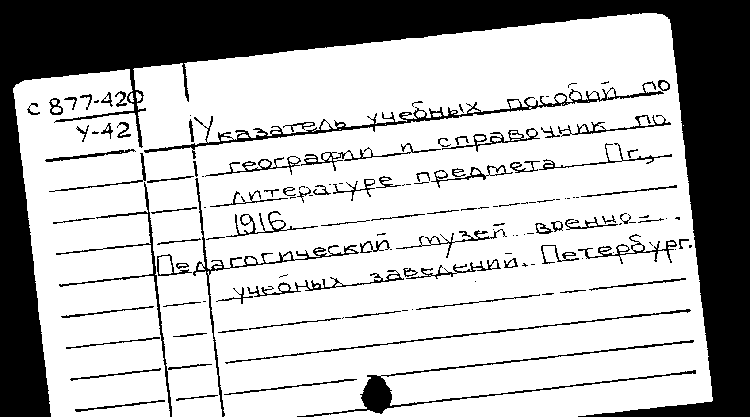 С 877-420
У-42
Указатель учебных пособий по
географии и справочник по
литературе предмета. Пг.,
1916.
Педагогический музей военно-
учебных заведений. Петербург.